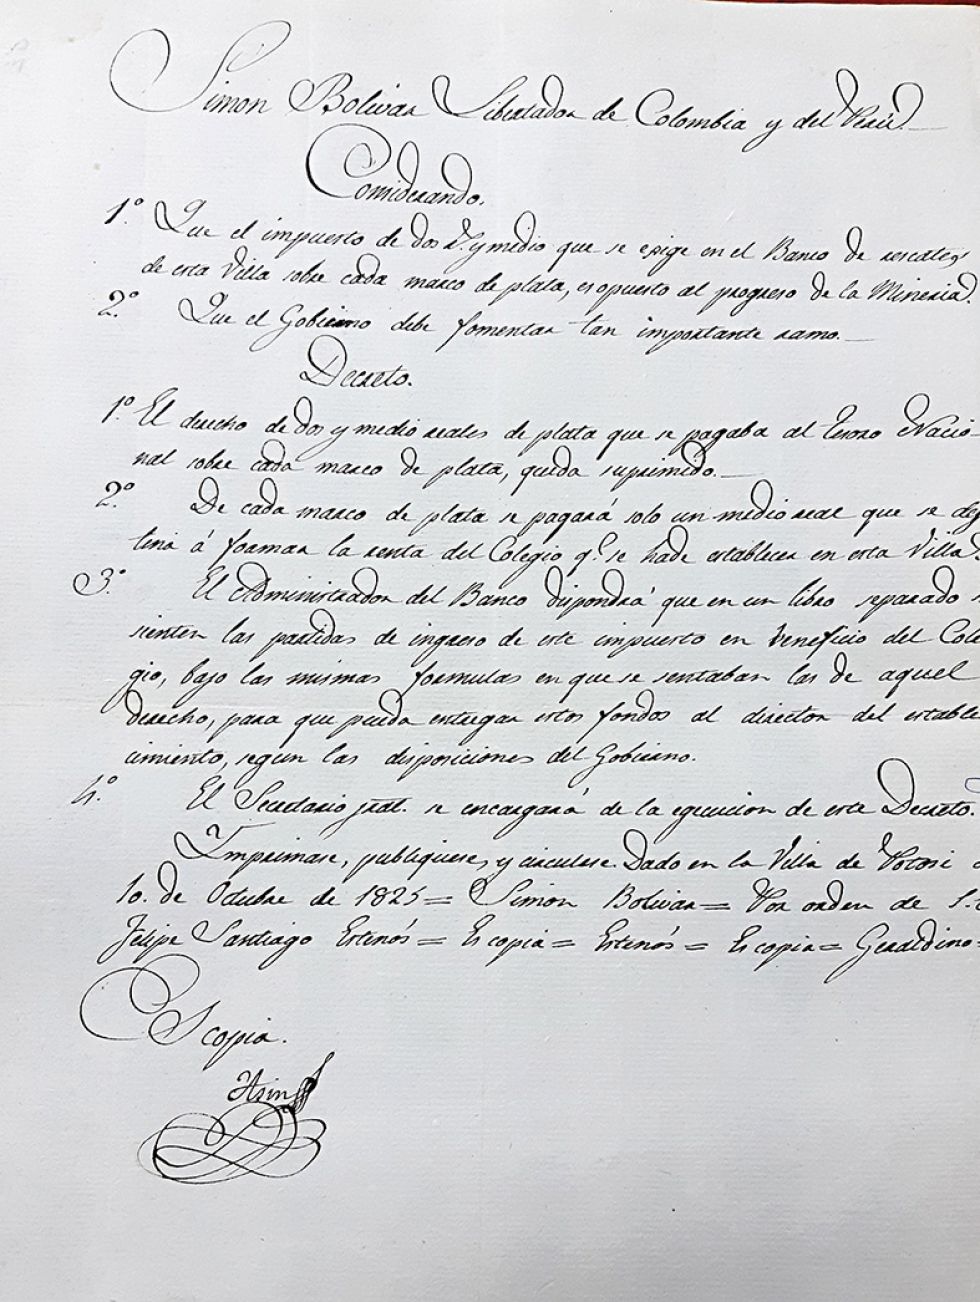 Simon Bolivar Libertador de Colombia y del Perú.
Considerando.
1.º Que el impuesto de dos r.s y medio que se exige en el Banco de rescates
de esta Villa sobre cada marco de plata, es opuesto al progreso de la Mineria.
2.º Que el Gobierno debe fomentar tan importante ramo.
Decreto.
1.º El derecho de dos y medio reales de plata que se pagaba al tesoro Nacio-
nal sobre cada marco de plata, queda suprimido.
2.º De cada marco de plata se pagará solo un medio real que se des
tina á formar la renta del Colegio q.e se hade establecer en esta Villa.
3.º El Administrador del Banco dispondrá que en un libro separado s
sienten las partidas de ingreso de este impuesto en beneficio del Cole
gio, bajo las mismas formulas en que se sentaban las de aquel
derecho, para que pueda entregar estos fondos al director del estable
cimiento, segun las disposiciones del Gobierno.
4.º El Secretario jral. se encargará de la egecucion de este Decreto.
Imprimase, publiquese, y circulese. Dado en la Villa de Potosi
10. de Octubre de 1825 = Simon Bolivar = Por orden de S.
Felipe Santiago Estenós = Es copia = Estenós = Es copia = Geraldino =
Es copia.